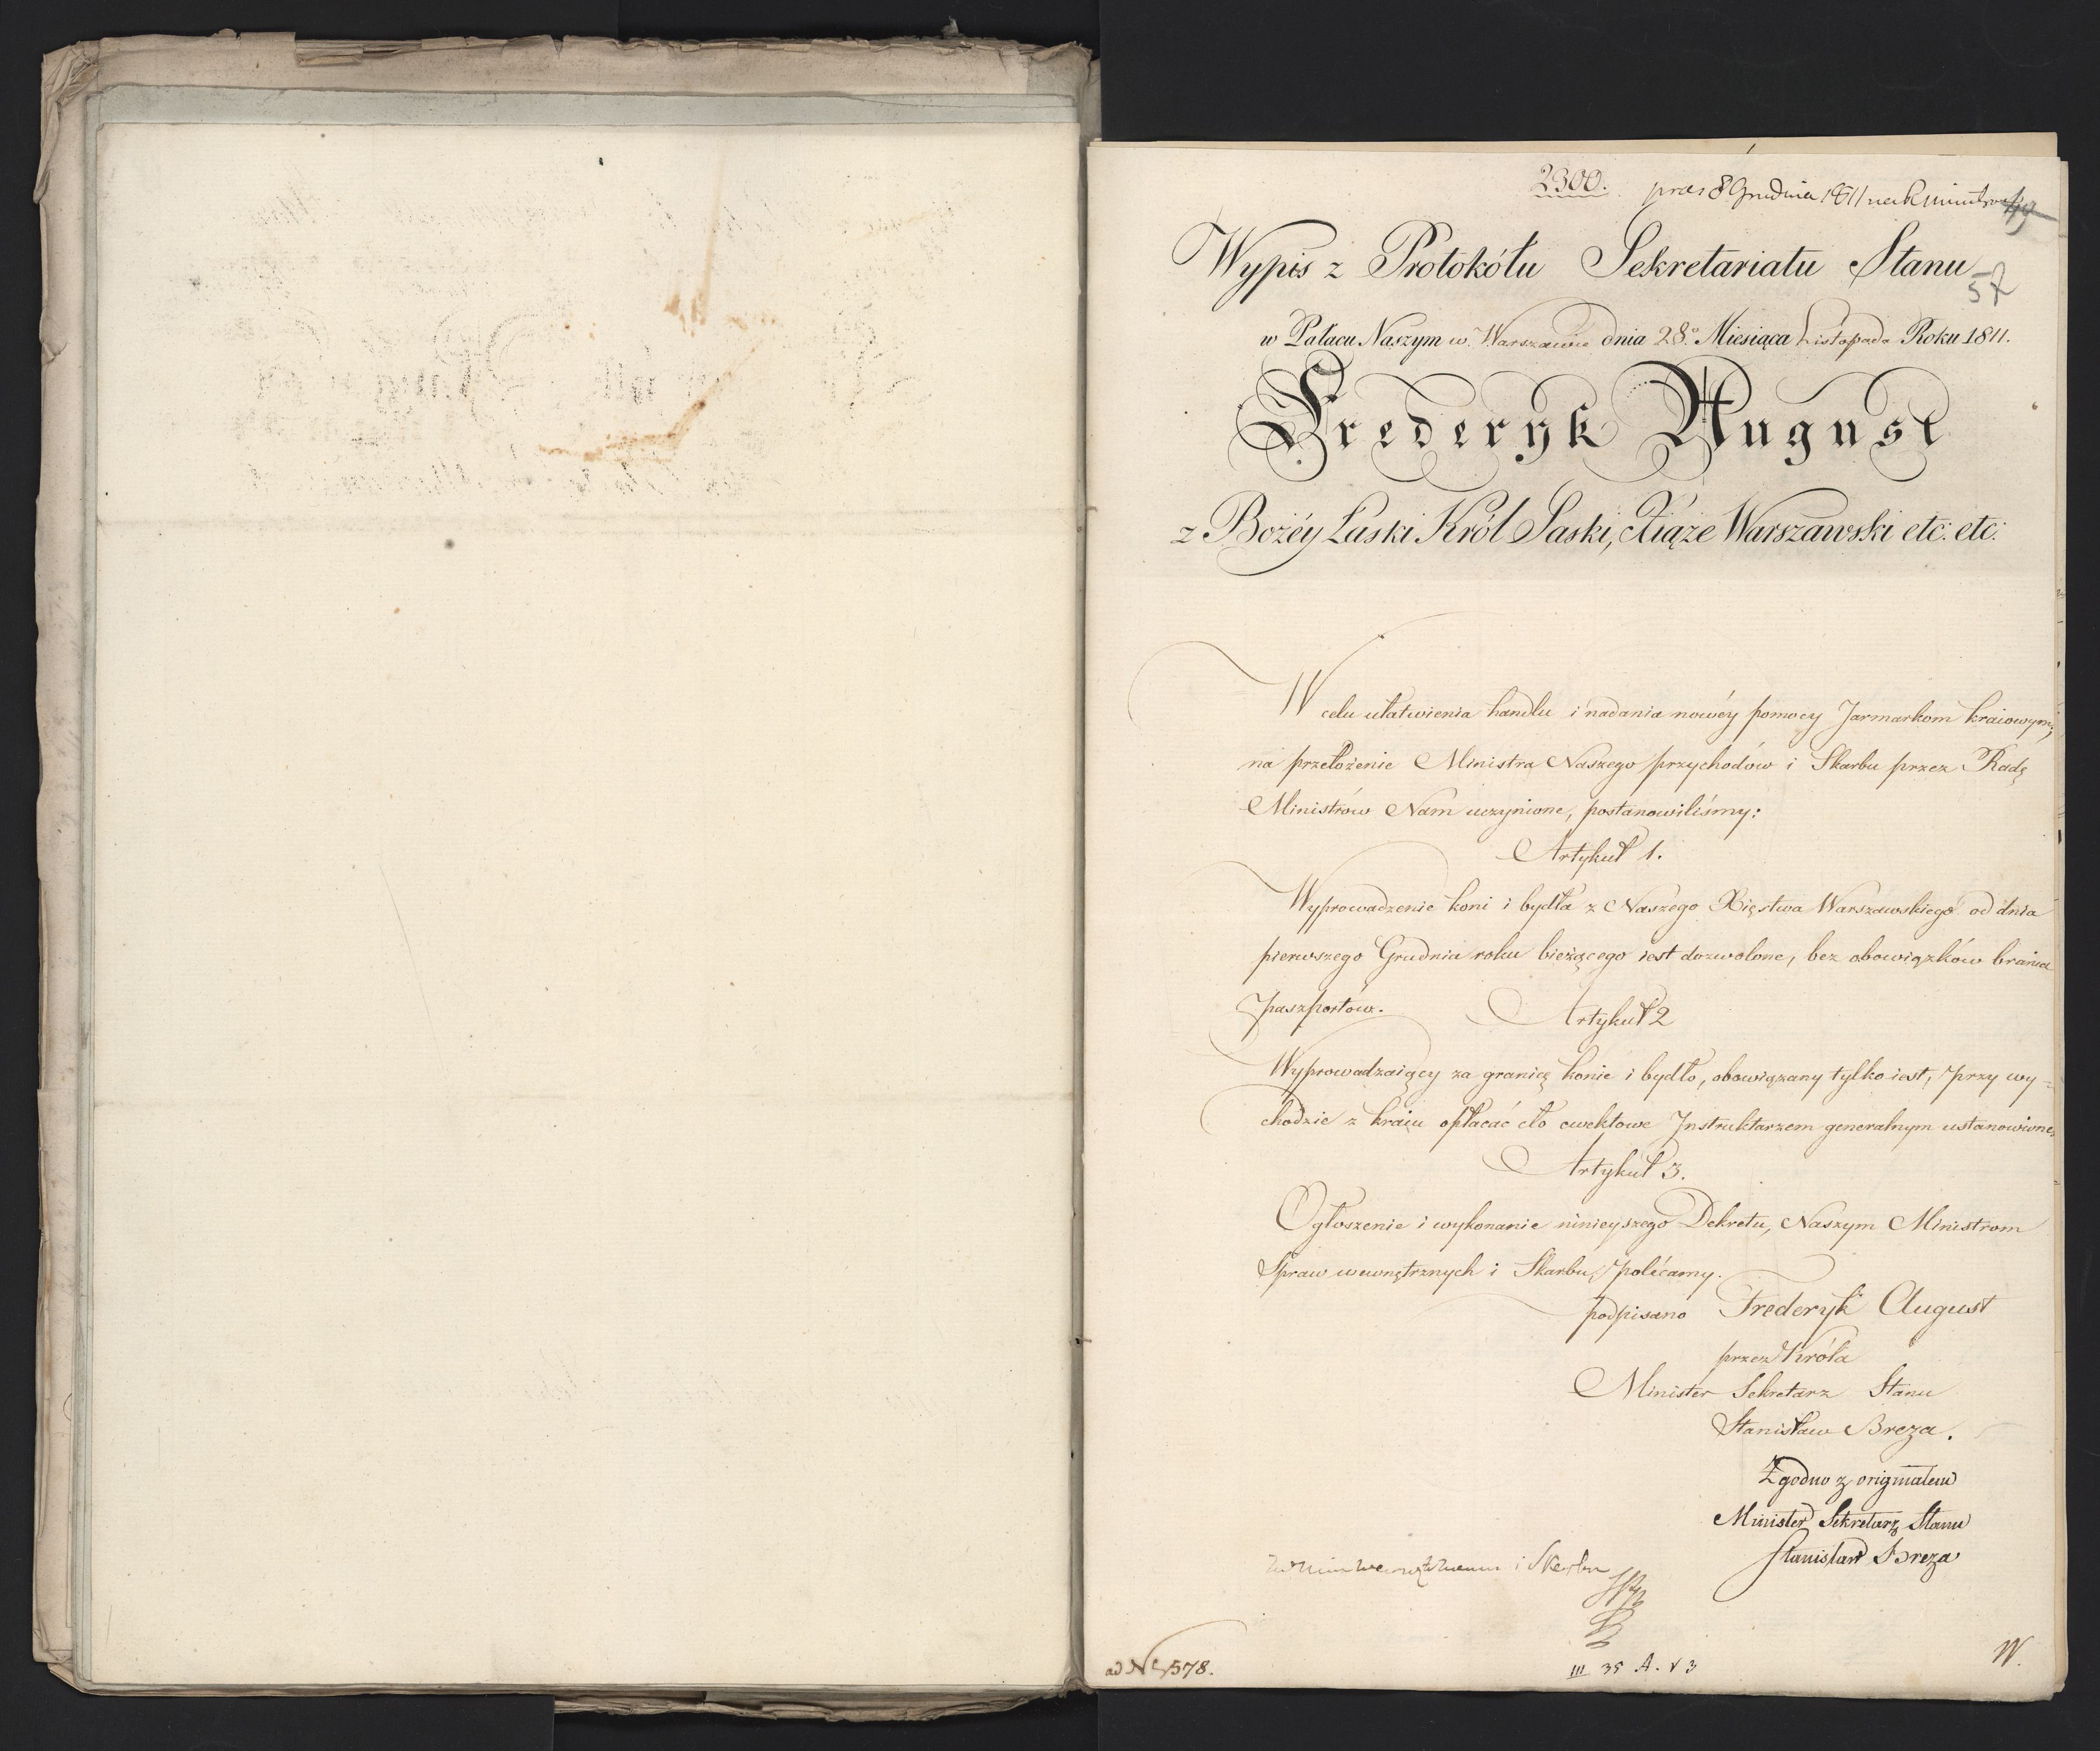 2300. 8 Grudnia 1811
49
Wypis z Protokółu Sekretariatu Stanu
57
w Pałacu Naszym w Warszawie dnia 28º Miesiąca Listopada Roku 1811.
Frederyk August
z Bożéy Łaski Król Saski, Xiąże Warszawski etc: etc:
W celu ułatwienia handlu i nadania nowéy pomocy Jarmarkom kraiowym,
na przełożenie Ministra Naszego przychodów i Skarbu przez Radę
Ministrów Nam uczynione, postanowiliśmy:
Artykuł 1.
Wyprowadzenie koni i bydła z Naszego Xięstwa Warszawskiego od dnia
pierwszego Grudnia roku bieżącego iest dozwolone, bez obowiązków brania
paszportów.
Artykuł 2
Wyprowadzaiący za granicę konie i bydło, obowiązany tylko iest, przy wy=
chodzie z kraiu opłacać cło ewektowe Instruktarzem generalnym ustanowione,
Artykuł 3.
Ogłoszenie i wykonanie ninieyszego Dekretu, Naszym Ministrom
Spraw wewnętrznych i Skarbu, polécamy.
podpisano Frederyk August
przez Króla
Minister Sekretarz Stanu
Stanisław Breza.
Zgodno z originałem
Minister Sekretarz Stanu
Stanisław Breza
i Skarbu
ad № 1578.
III 35 A. v 3
W.